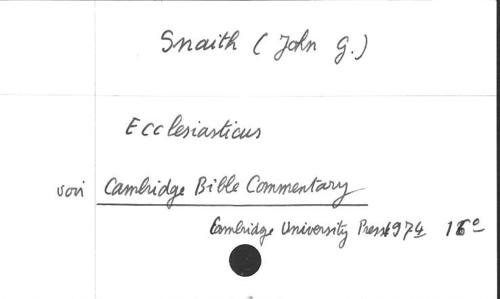 Snaith (John G.)
Ecclesiasticus
voir Cambridge Bible Commentary
Cambridge University Press 1974 16°